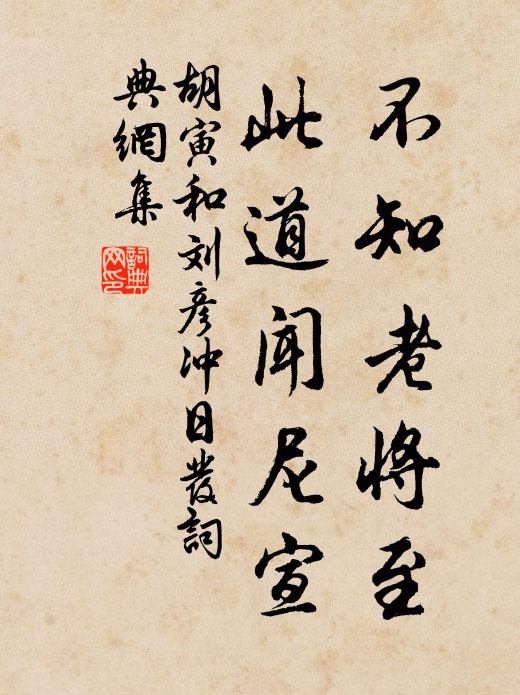 不知老將至
此道闻尼宣
胡寅和刘彦冲日發詞
典網集
詞典網印